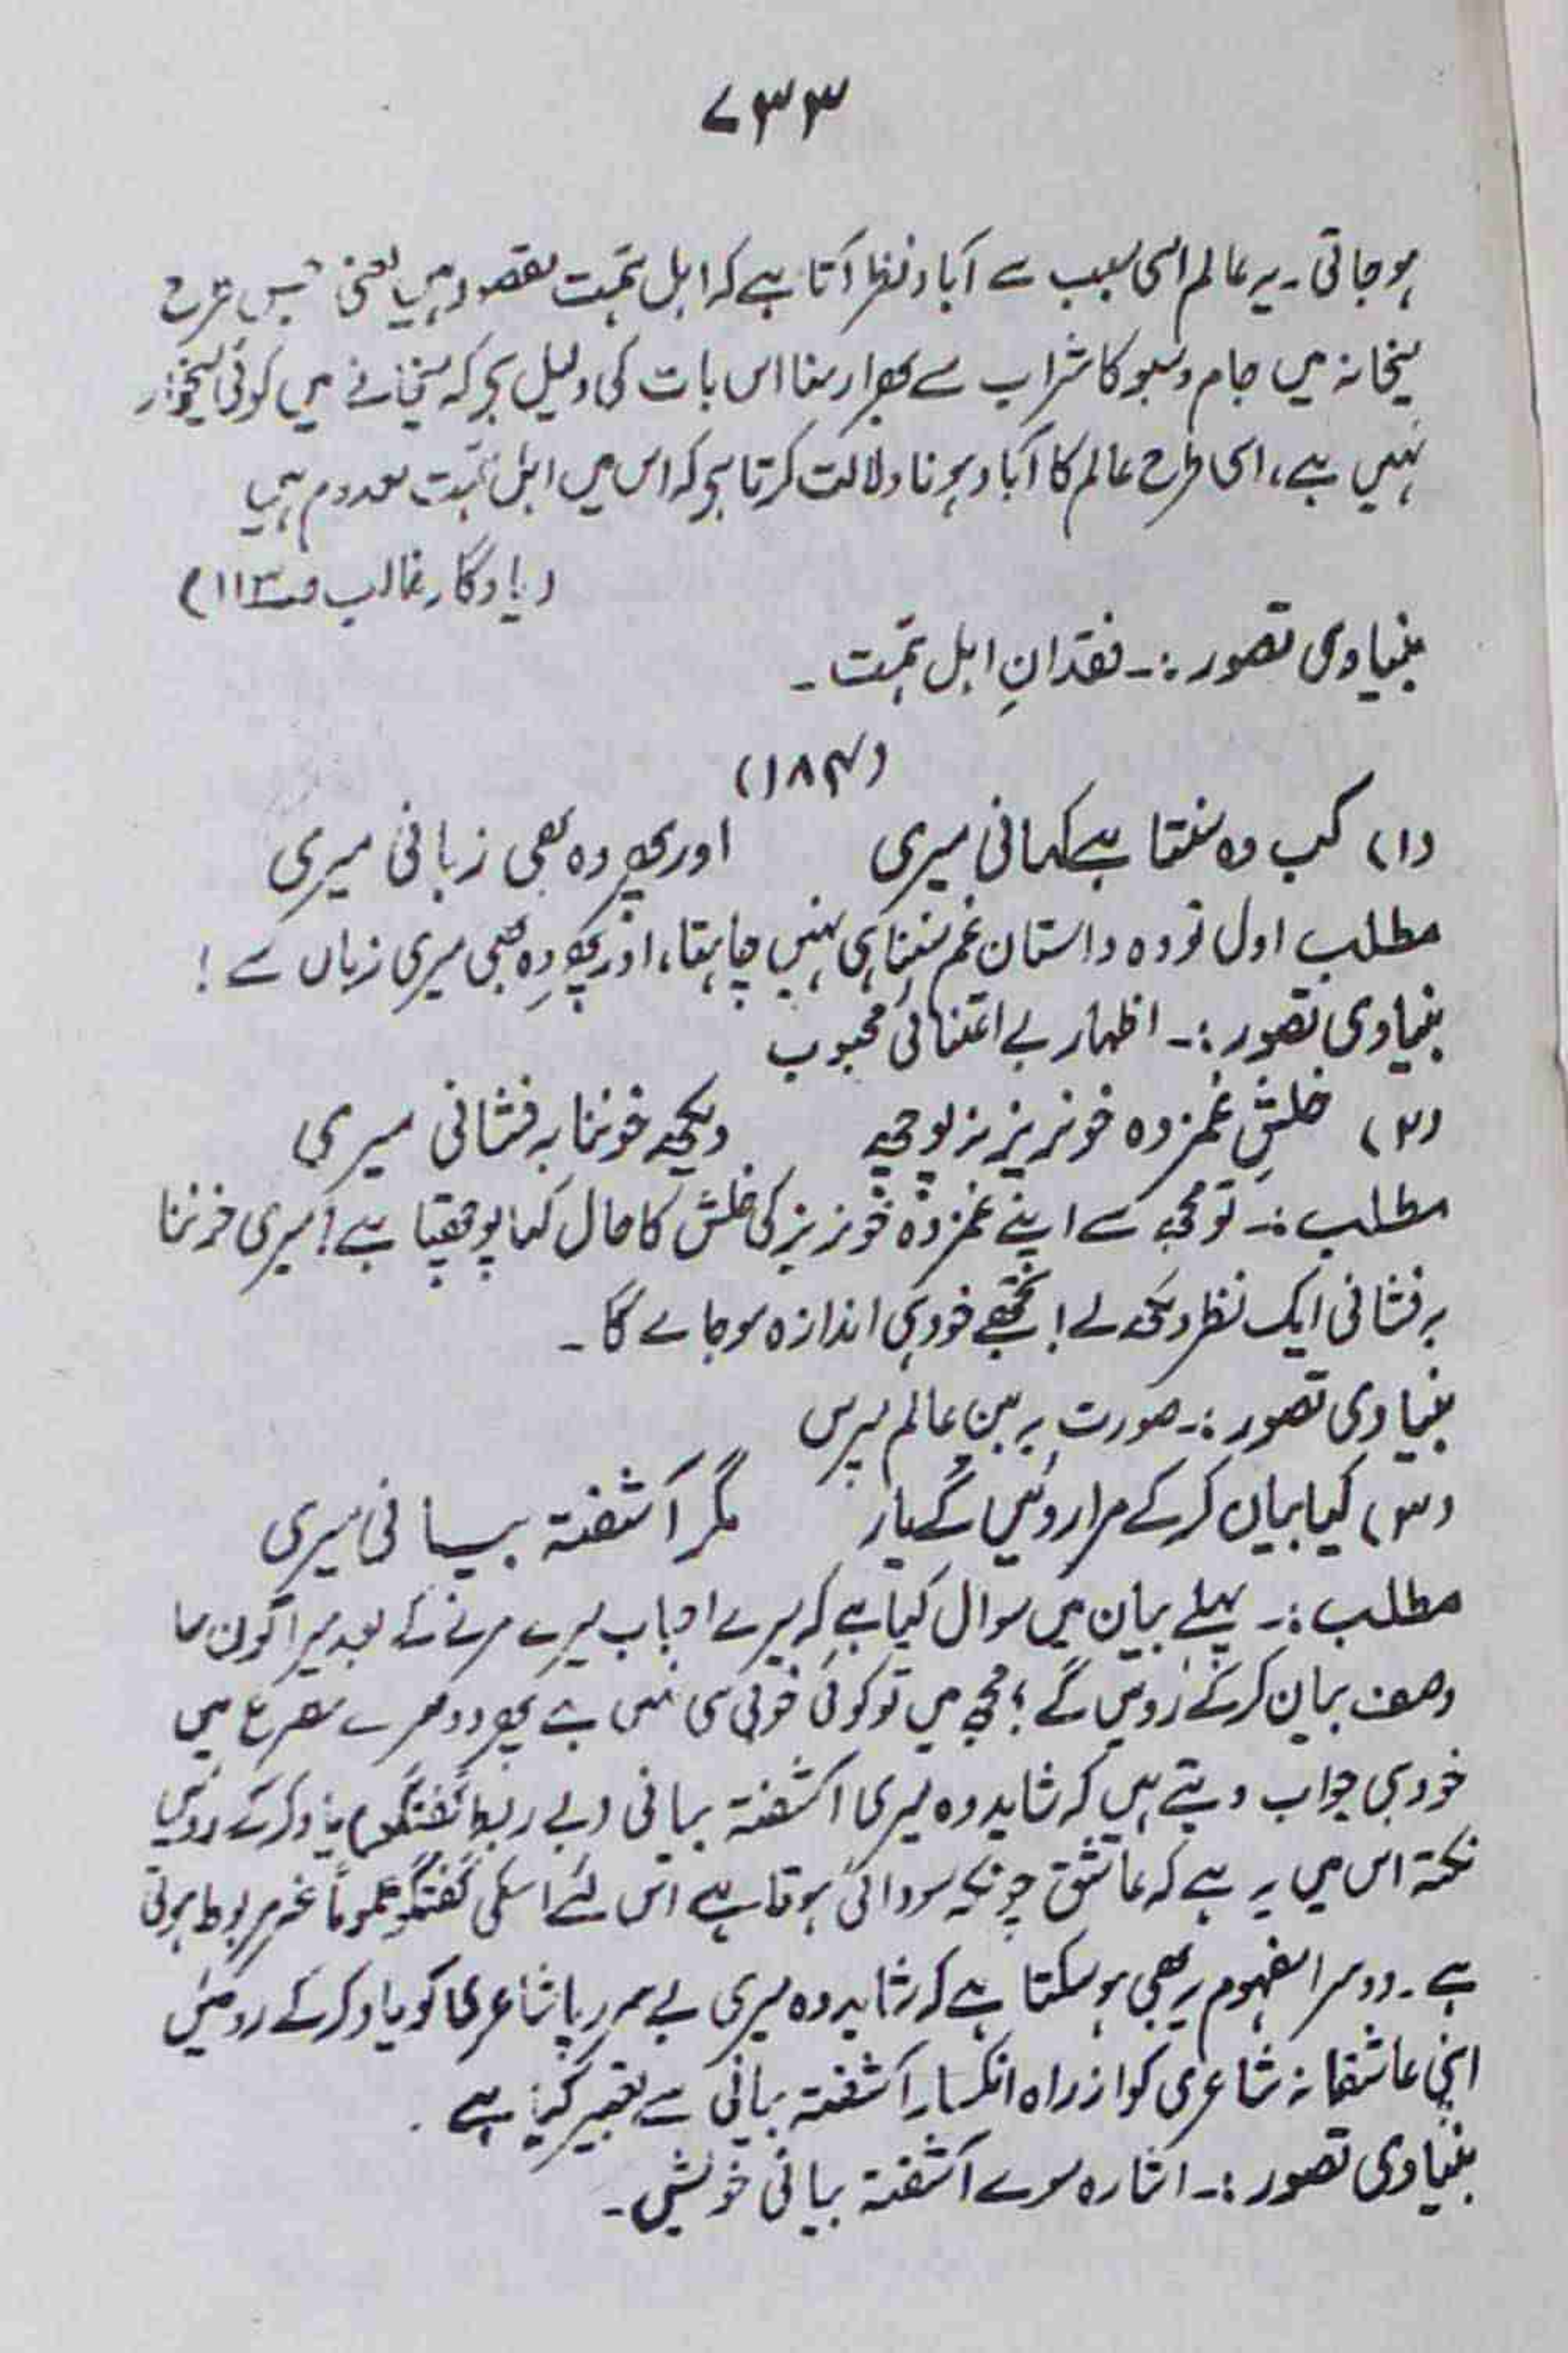 ۷۳۳
ہو جاتی۔ یہ عالم اسی سبب سے آباد نظر آتا ہے کہ اہل ہمت مفقود ہیں یعنی جس طرح
میخانہ میں جام و سبو کا شراب سے بھرا رہنا اس بات کی دلیل ہے کہ میخانے میں کوئی میخوار
نہیں ہے، اسی طرح عالم کا آباد ہونا دلالت کرتا ہے کہ اس میں اہل ہمت معدوم ہیں
(یادگار غالب ص ۱۱۳)
بنیادی تصور :۔ فقدانِ اہل ہمت ۔
(۱۸۴)
(۱) کب وہ سنتا ہے کہانی میری اور پھر وہ بھی زبانی میری
مطلب اول تو وہ داستانِ غم سننا ہی نہیں چاہتا، اور پھر وہ بھی میری زباں سے !
بنیادی تصور :۔ اظہار بے اعتنائی محبوب
(۲) خلشِ غمزدہ خونریز نہ پوچھ دیکھ خوننابہ فشانی میری
مطلب :۔ تو مجھ سے اپنے غمزدہ خونریز کی خلش کا حال کیا پوچھتا ہے! میری خوننا
بہ فشانی ایک نظر دیکھ لے! تجھے خود ہی اندازہ ہو جائے گا ۔
بنیادی تصور :۔ صورت بہ بیں عالم مپرس
(۳) کیا بیاں کر کے مرا روئیں گے یار مگر آشفتہ بیانی میری
مطلب :۔ پہلے بیان میں سوال کیا ہے کہ میرے احباب میرے مرنے کے بعد میرا کون سا
وصف بیان کر کے روئیں گے ؟ مجھ میں تو کوئی خوبی ہی نہیں ہے پھر دوسرے مصرع میں
خود ہی جواب دیتے ہیں کہ شاید وہ میری آشفتہ بیانی (بے ربط گفتگو) یاد کر کے روئیں
نکتہ اس میں یہ ہے کہ عاشق چونکہ سودائی ہوتا ہے اس لئے اسکی گفتگو عموماً غیر مربوط ہوتی
ہے ۔ دوسرا مفہوم یہ بھی ہو سکتا ہے کہ شاید وہ میری بے سر و پا شاعری کو یاد کر کے روئیں
اپنی عاشقانہ شاعری کو از راہ انکسار آشفتہ بیانی سے تعبیر کیا ہے .
بنیادی تصور :۔ اشارہ سوے آشفتہ بیانی خویش ۔